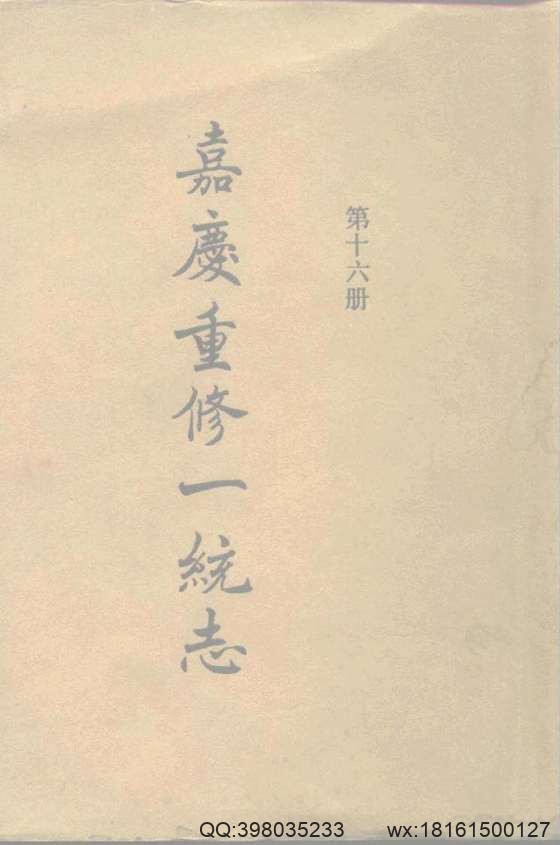 第十六册
嘉慶重修一統志
QQ:398035233 wx:18161500127